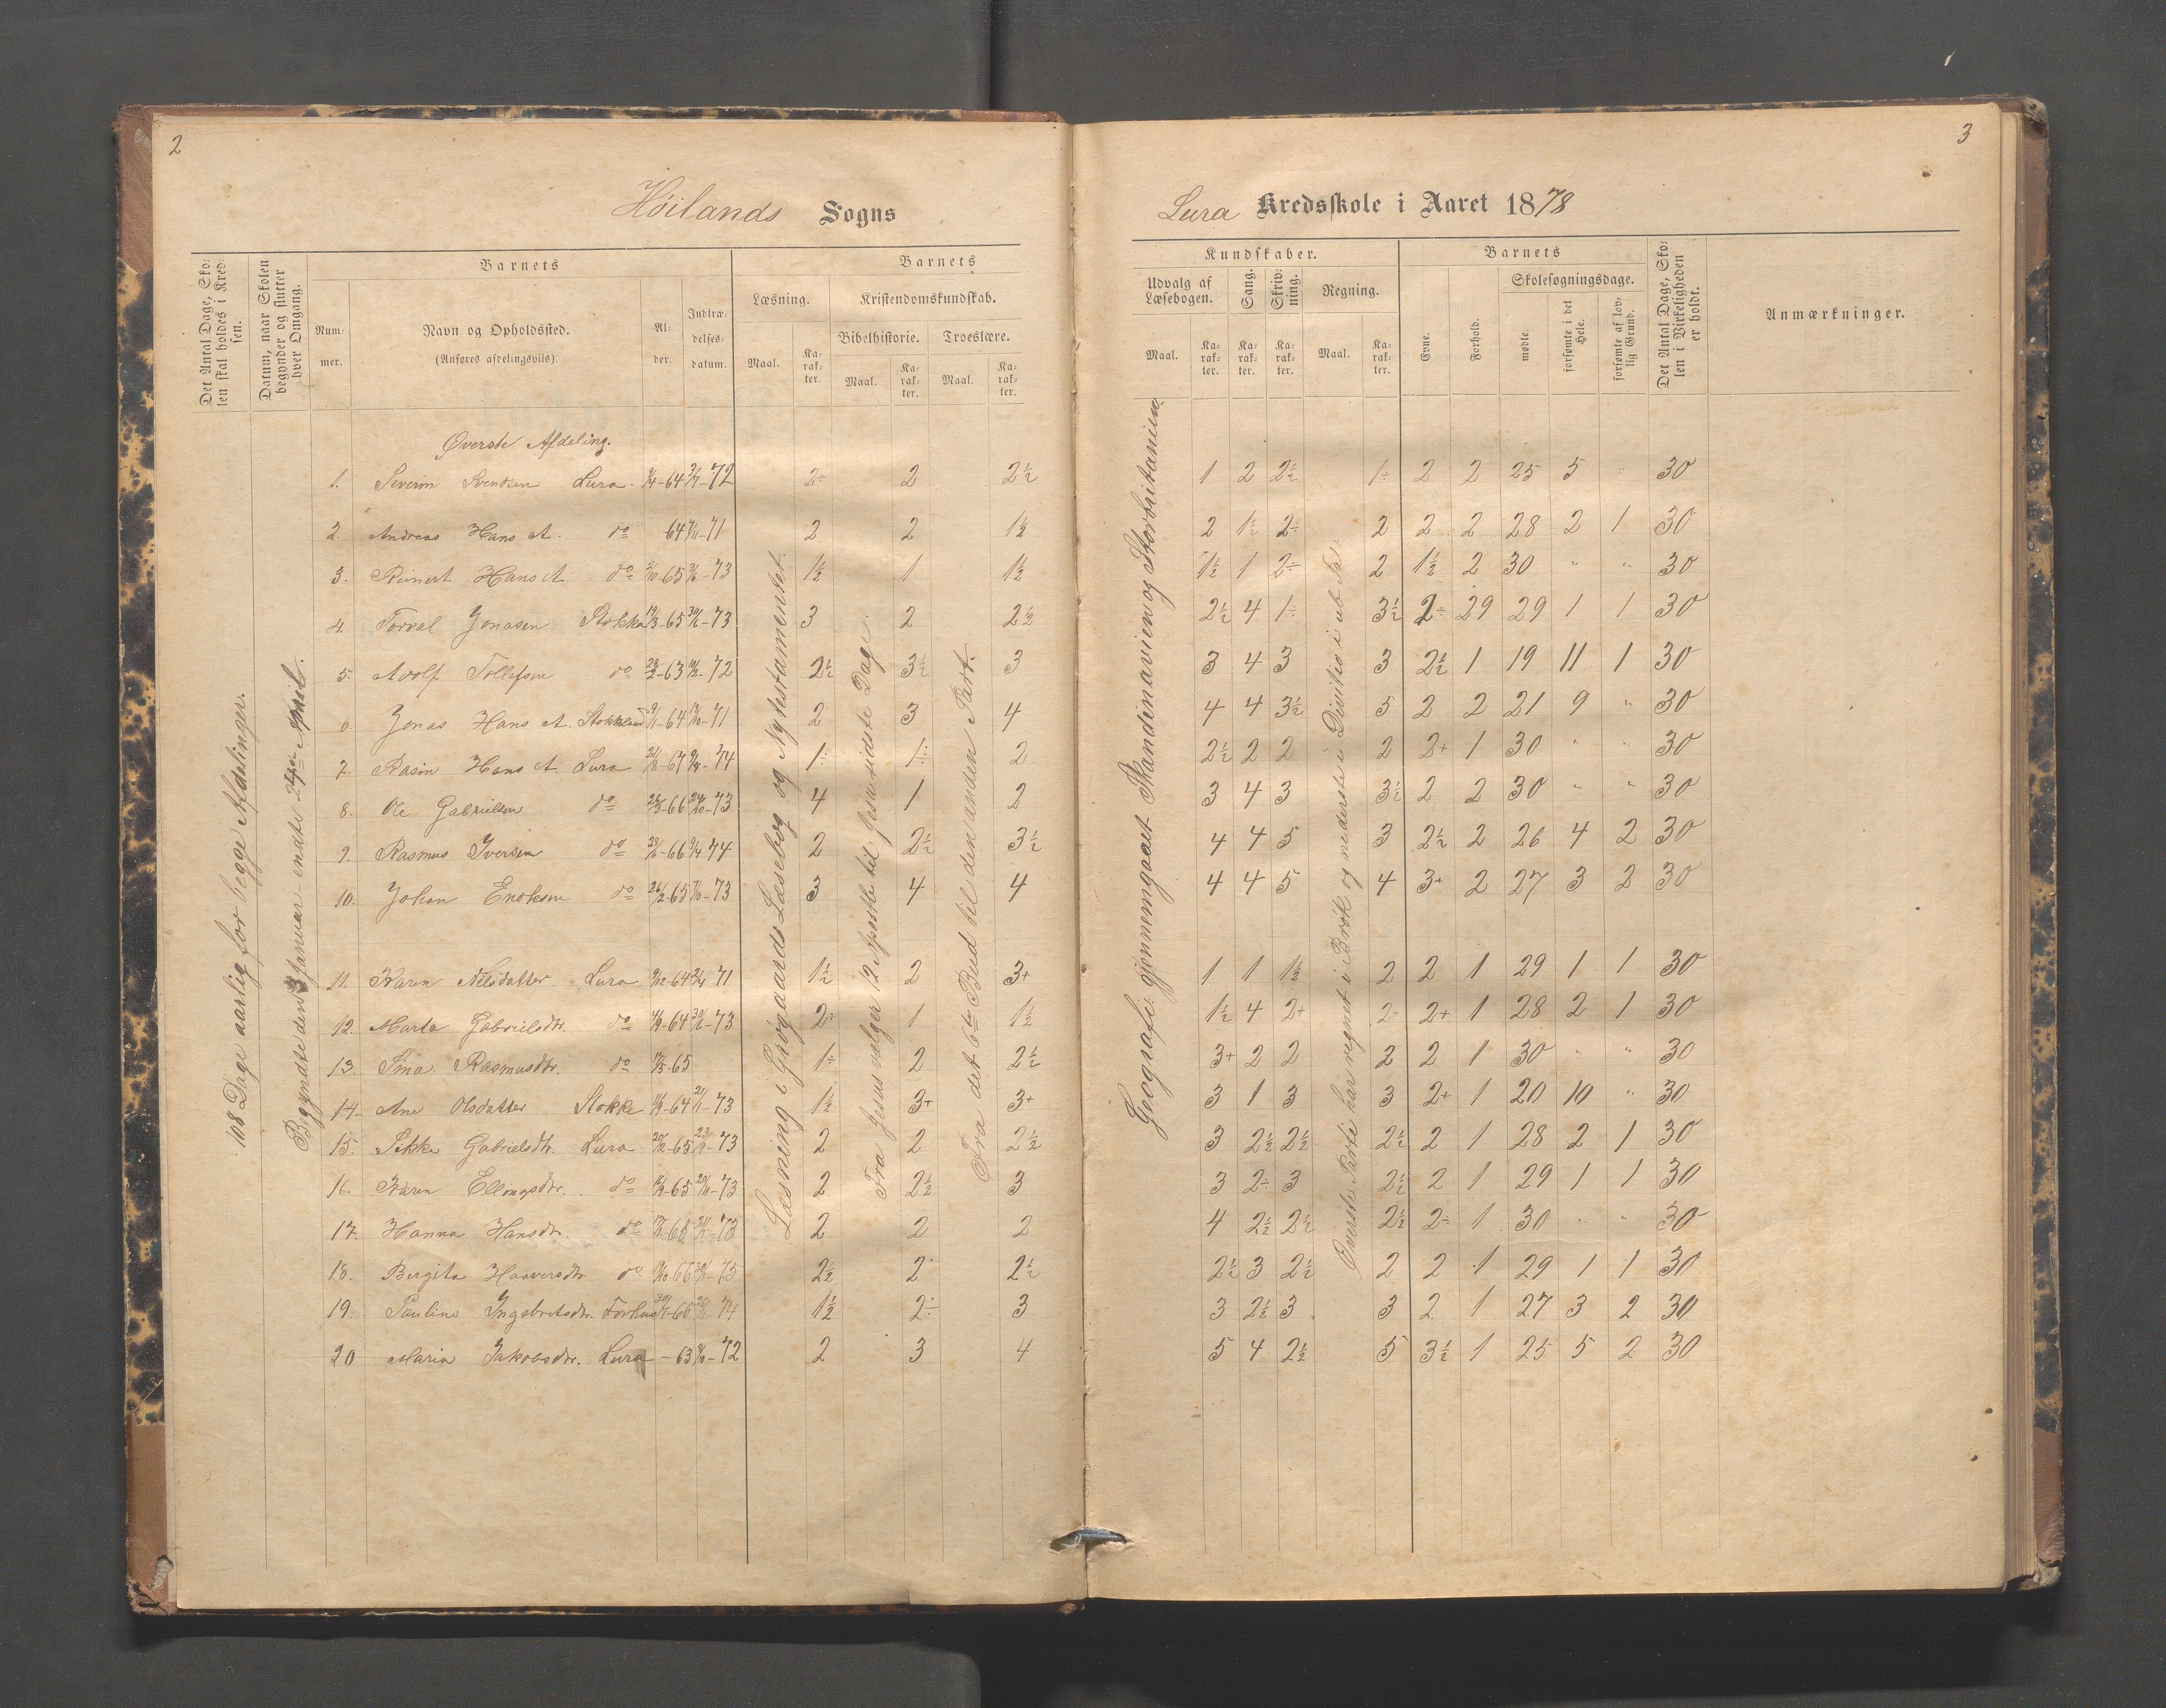 2
Høilands Sogns
Det Antal Dage, Skolen skal holdes i Kredsen.
Datum, naar Skolen begynder og slutter hver Omgang.
Barnets
Nummer.
Navn og Opholdssted.
(Anføres afdelingsvils).
Alder.
Indtrædelses-datum.
Barnets
Læsning.
Kristendomskundskab.
Bibelhistorie.
Troeslære.
Maal.
Karakter.
Maal.
Karakter.
Maal.
Karakter.
108 Dage aarlig for begge Afdelinger.
Begyndte den 3 Januar endte April.
Læsning i Grøgaards Læsebog og Nytestamentet.
Fra Jesus vælger 12 Apostle til Jesu sidste Dage.
Fra det 6te Bud til den anden Part.
Øverste Afdeling.
1. Severin Svendsen Lura 64 72 2÷ 2 2½
2. Andreas Hans A. do 64 71 2 2 1½
3. Reinert Hans A. do 65 73 1½ 1 1½
4. Torval Jonasen Stokka 65 73 3 2 2½
5. Adolf Tollefsen do 63 72 2½ 3½ 3
6. Jonas Hans A. Stokkeland 64 71 2 3 4
7. Rasm Hans A. Lura 67 74 1÷ 1÷ 2
8. Ole Gabrielsen do 66 73 4 1 2
9. Rasmus Iversen do 66 74 2 2½ 3½
10. Johan Enoksen do 65 73 3 4 4
11. Karen Nilsdatter Lura 64 71 1½ 2 3+
12. Marta Gabrielsdtr. do 64 73 2÷ 1 1½
13. Sina Rasmusdtr. do 65 1÷ 2 2½
14. Ane Olsdatter Stokke 64 73 1½ 3+ 3+
15. Sikke Gabrielsdtr. Lura 65 73 2 2 2½
16. Karen Ellingsdtr. do 65 73 2 2½ 3
17. Hanna Hansdtr. do 65 73 2 2 2
18. Bergita Haaversdtr. do 66 75 2½ 2 2½
19. Pauline Ingebretsdtr. Forhus 66 74 1½ 2÷ 3
20 Maria Jakobsdtr. Lura 63 72 2 3 4
3
Lura Kredsskole i Aaret 1878
Kundskaber.
Udvalg af Læsebogen.
Sang.
Skrivning.
Regning.
Maal.
Karakter.
Karakter.
Karakter.
Maal.
Karakter.
Barnets
Evne.
Forhold.
Skolesøgningsdage.
mødte.
forsømte i det Hele.
forsømte af lovlig Grund.
Det Antal Dage, Skolen i Virkeligheden er holdt.
Anmærkninger.
Geografi: gjennemgaaet Skandinavien og Storbritanien.
Øverste Parti har regnet i Brøk og nederste i Divitio i ub Tal.
1 2 2½ 1÷ 2 2 25 5 " 30
2 1½ 2÷ 2 2 2 28 2 1 30
1½ 1 2÷ 2 1½ 2 30 " " 30
2½ 4 1÷ 3½ 2÷ 29 29 1 1 30
3 4 3 3 2½ 1 19 11 1 30
4 4 3½ 5 2 2 21 9 " 30
2½ 2 2 2 2+ 1 30 " " 30
3 4 3 3½ 2 2 30 " " 30
4 4 5 3 2½ 2 26 4 2 30
4 4 5 4 3+ 2 27 3 2 30
1 1 1½ 2 2 1 29 1 1 30
1½ 4 2+ 2- 2+ 1 28 2 1 30
3+ 2 2 2 2 1 30 " " 30
3 1 3 3 2+ 1 20 10 " 30
3 2½ 2½ 2½ 2 1 28 2 1 30
3 2÷ 3 2½ 2 1 29 1 1 30
4 2½ 2½ 2½ 2÷ 1 30 " " 30
2½ 3 2½ 2 2 1 29 1 1 30
3 2½ 3 3 2 1 27 3 2 30
5 4 2½ 5 3½ 1 25 5 2 30